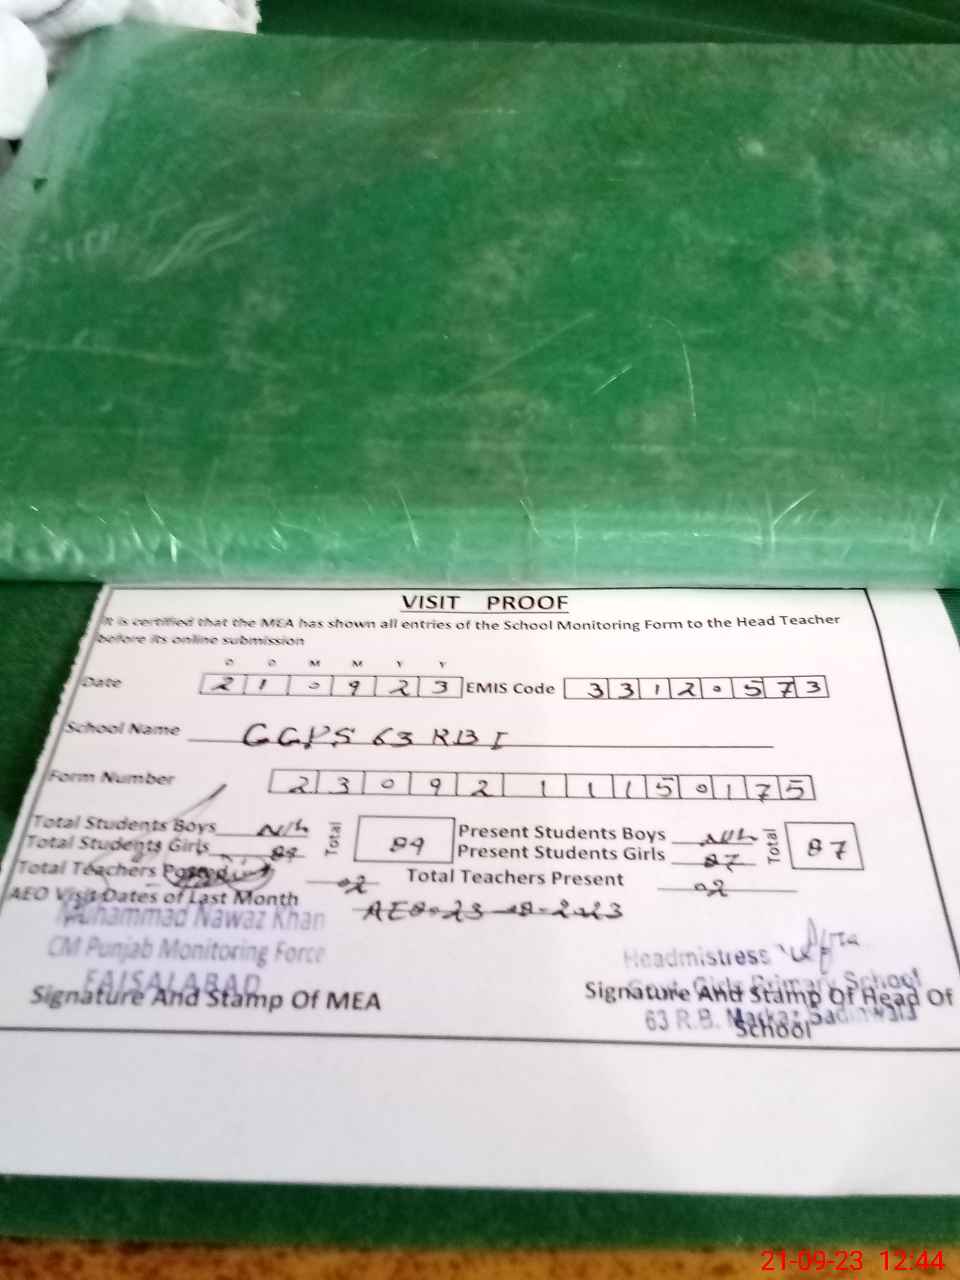 VISIT PROOF
It is certified that the MEA has shown all entries of the School Monitoring Form to the Head Teacher
before its online submission
D D M M Y Y
Date 21 09 23 EMIS Code 33120573
School Name GGPS 63 RB I
Form Number 2309211150175
Total Students Boys Nil Total 89 Present Students Boys Nil Total 87
Total Students Girls 89 Present Students Girls 87
Total Teachers Posted 02 Total Teachers Present 02
AEO Visit Dates of Last Month AEO. 23-08-2023
Muhammad Nawaz Khan
CM Punjab Monitoring Force
FAISALABAD
Signature And Stamp Of MEA
Headmistress
Govt. Girls Primary School
Signature And Stamp Of Head Of
63 R.B. Markaz
School
21-09-23 12:44